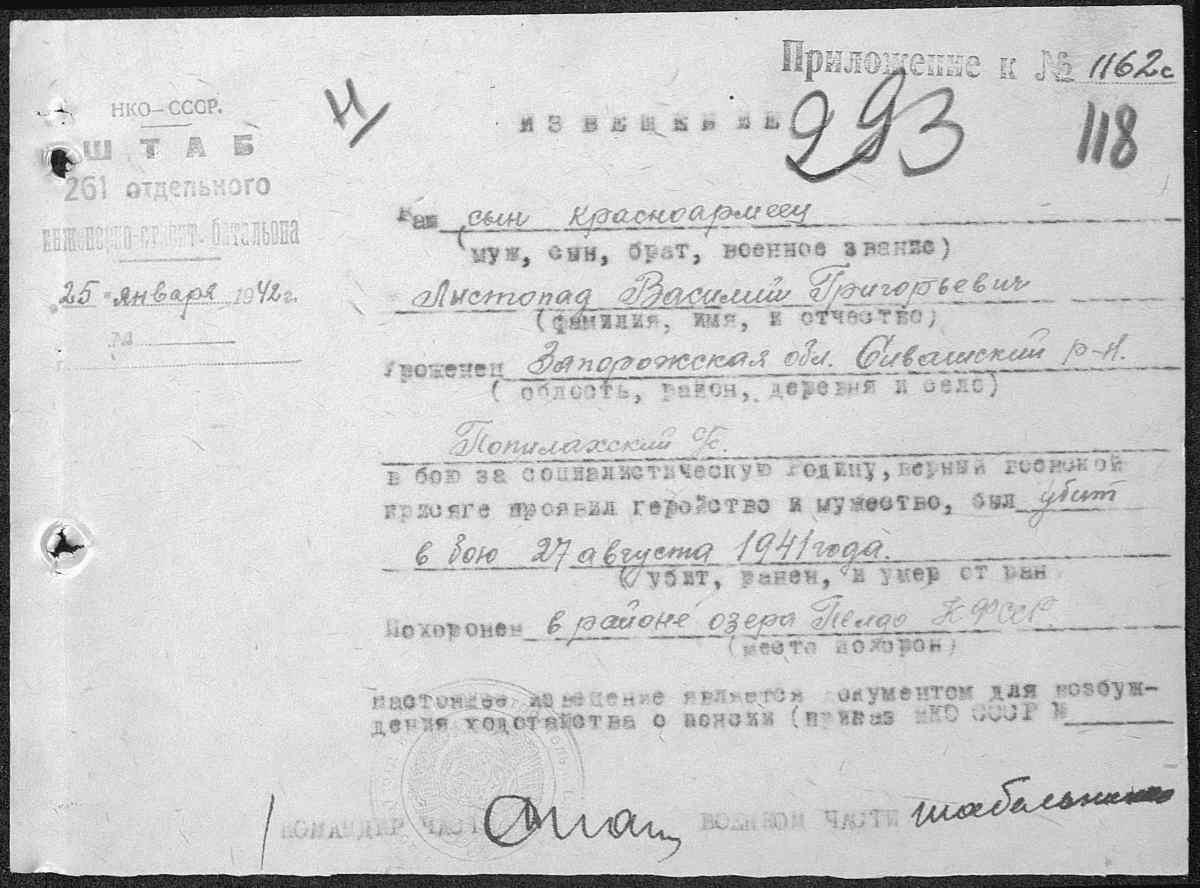 Приложение к № 1162с
НКО-СССР.
Н
ИЗВЕЩЕНИЕ
293
118
ШТАБ
261 отдельного
инженерно-строит. батальона
"25" января 1942г.
№
Ваш сын красноармеец
(муж, сын, брат, военное звание)
Листопад Василий Григорьевич
(фамилия, имя, и отчество)
Уроженец Запорожская обл. Сивашский р-н.
( область, район, деревня и село)
с/с.
в бою за социалистическую родину, верный воинской
присяге проявил геройство и мужество, был убит
в бою 27 августа 1941 года.
( убит, ранен, и умер от ран
Похоронен в районе озера Пелдо КФССР.
(место похорон)
настоящее извещение является документом для возбуж-
дения ходотайства о пенсии (приказ НКО СССР №
КОМАНДИР ЧАСТИ
ВОЕНКОМ ЧАСТИ